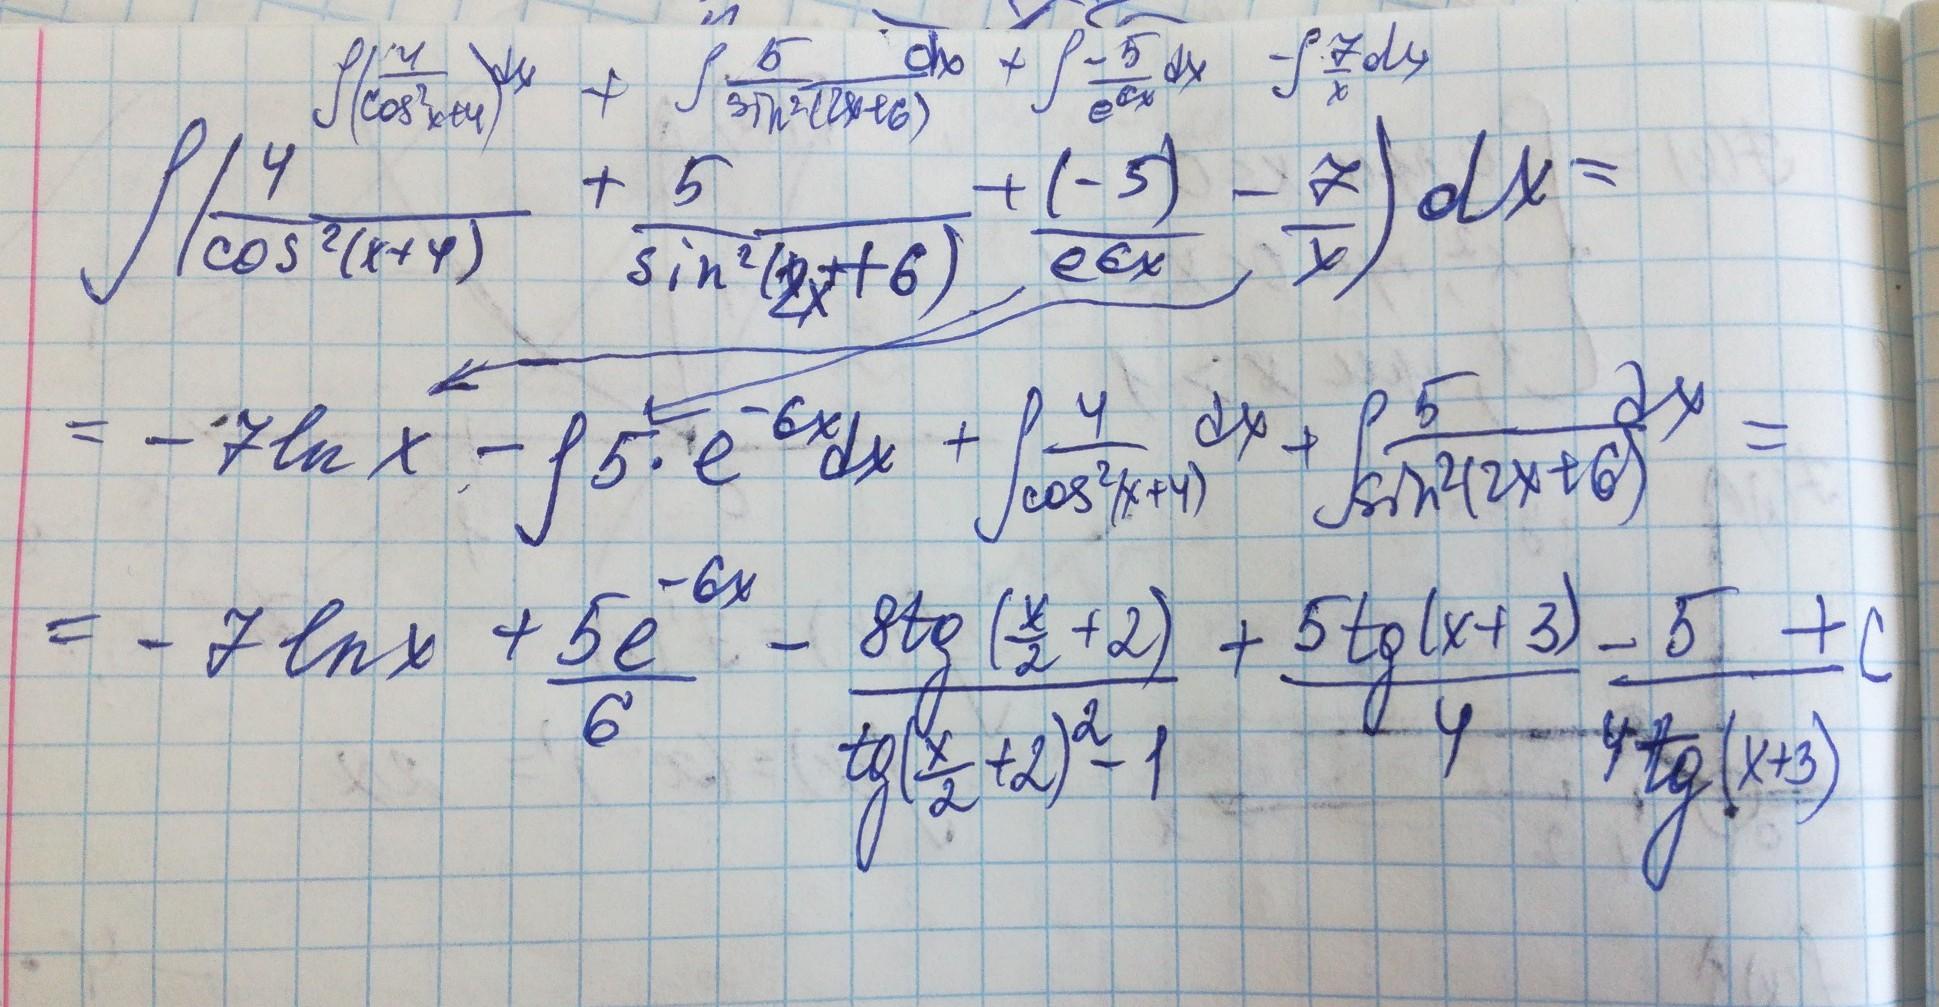 ∫(4/cos²x+4)dx + ∫5/sin²(2x+6) dx + ∫-5/e^6x dx -∫7/x dx
∫(4/cos²(x+4) + 5/sin²(2x+6) + (-5)/e6x - 7/x)dx=
= -7ln x - ∫5·e^-6x dx + ∫4/cos²(x+4) dx + ∫5/sin²(2x+6) dx =
= -7lnx + 5e^-6x/6 - 8tg(x/2+2)/tg(x/2+2)²-1 + 5tg(x+3)/4 - 5/4tg(x+3) + C